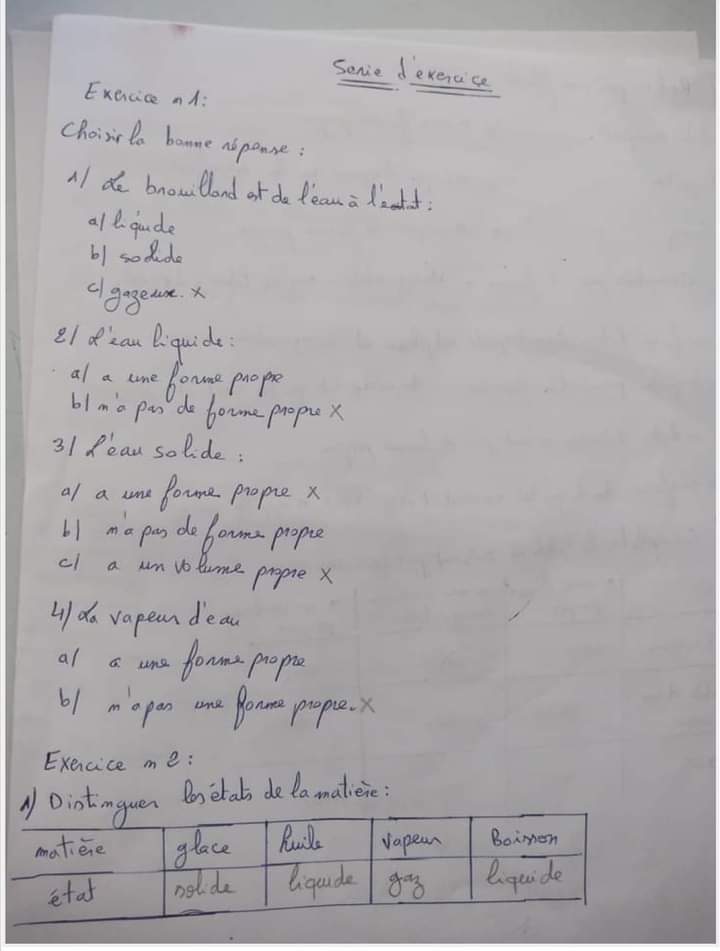 Serie d'exercice
Exercice n 1:
Choisir la bonne réponse :
1/ Le brouillard est de l'eau à l'état :
a/ liquide
b/ solide
c/ gazeux. x
2/ L'eau liquide :
a/ a une forme propre
b/ n'a pas de forme propre x
3/ L'eau solide :
a/ a une forme propre x
b/ n'a pas de forme propre
c/ a un volume propre x
4/ La vapeur d'eau
a/ a une forme propre
b/ n'a pas une forme propre. x
Exercice n 2 :
1) Distinguer les états de la matière :
matière glace huile vapeur Boisson
état solide liquide gaz liquide